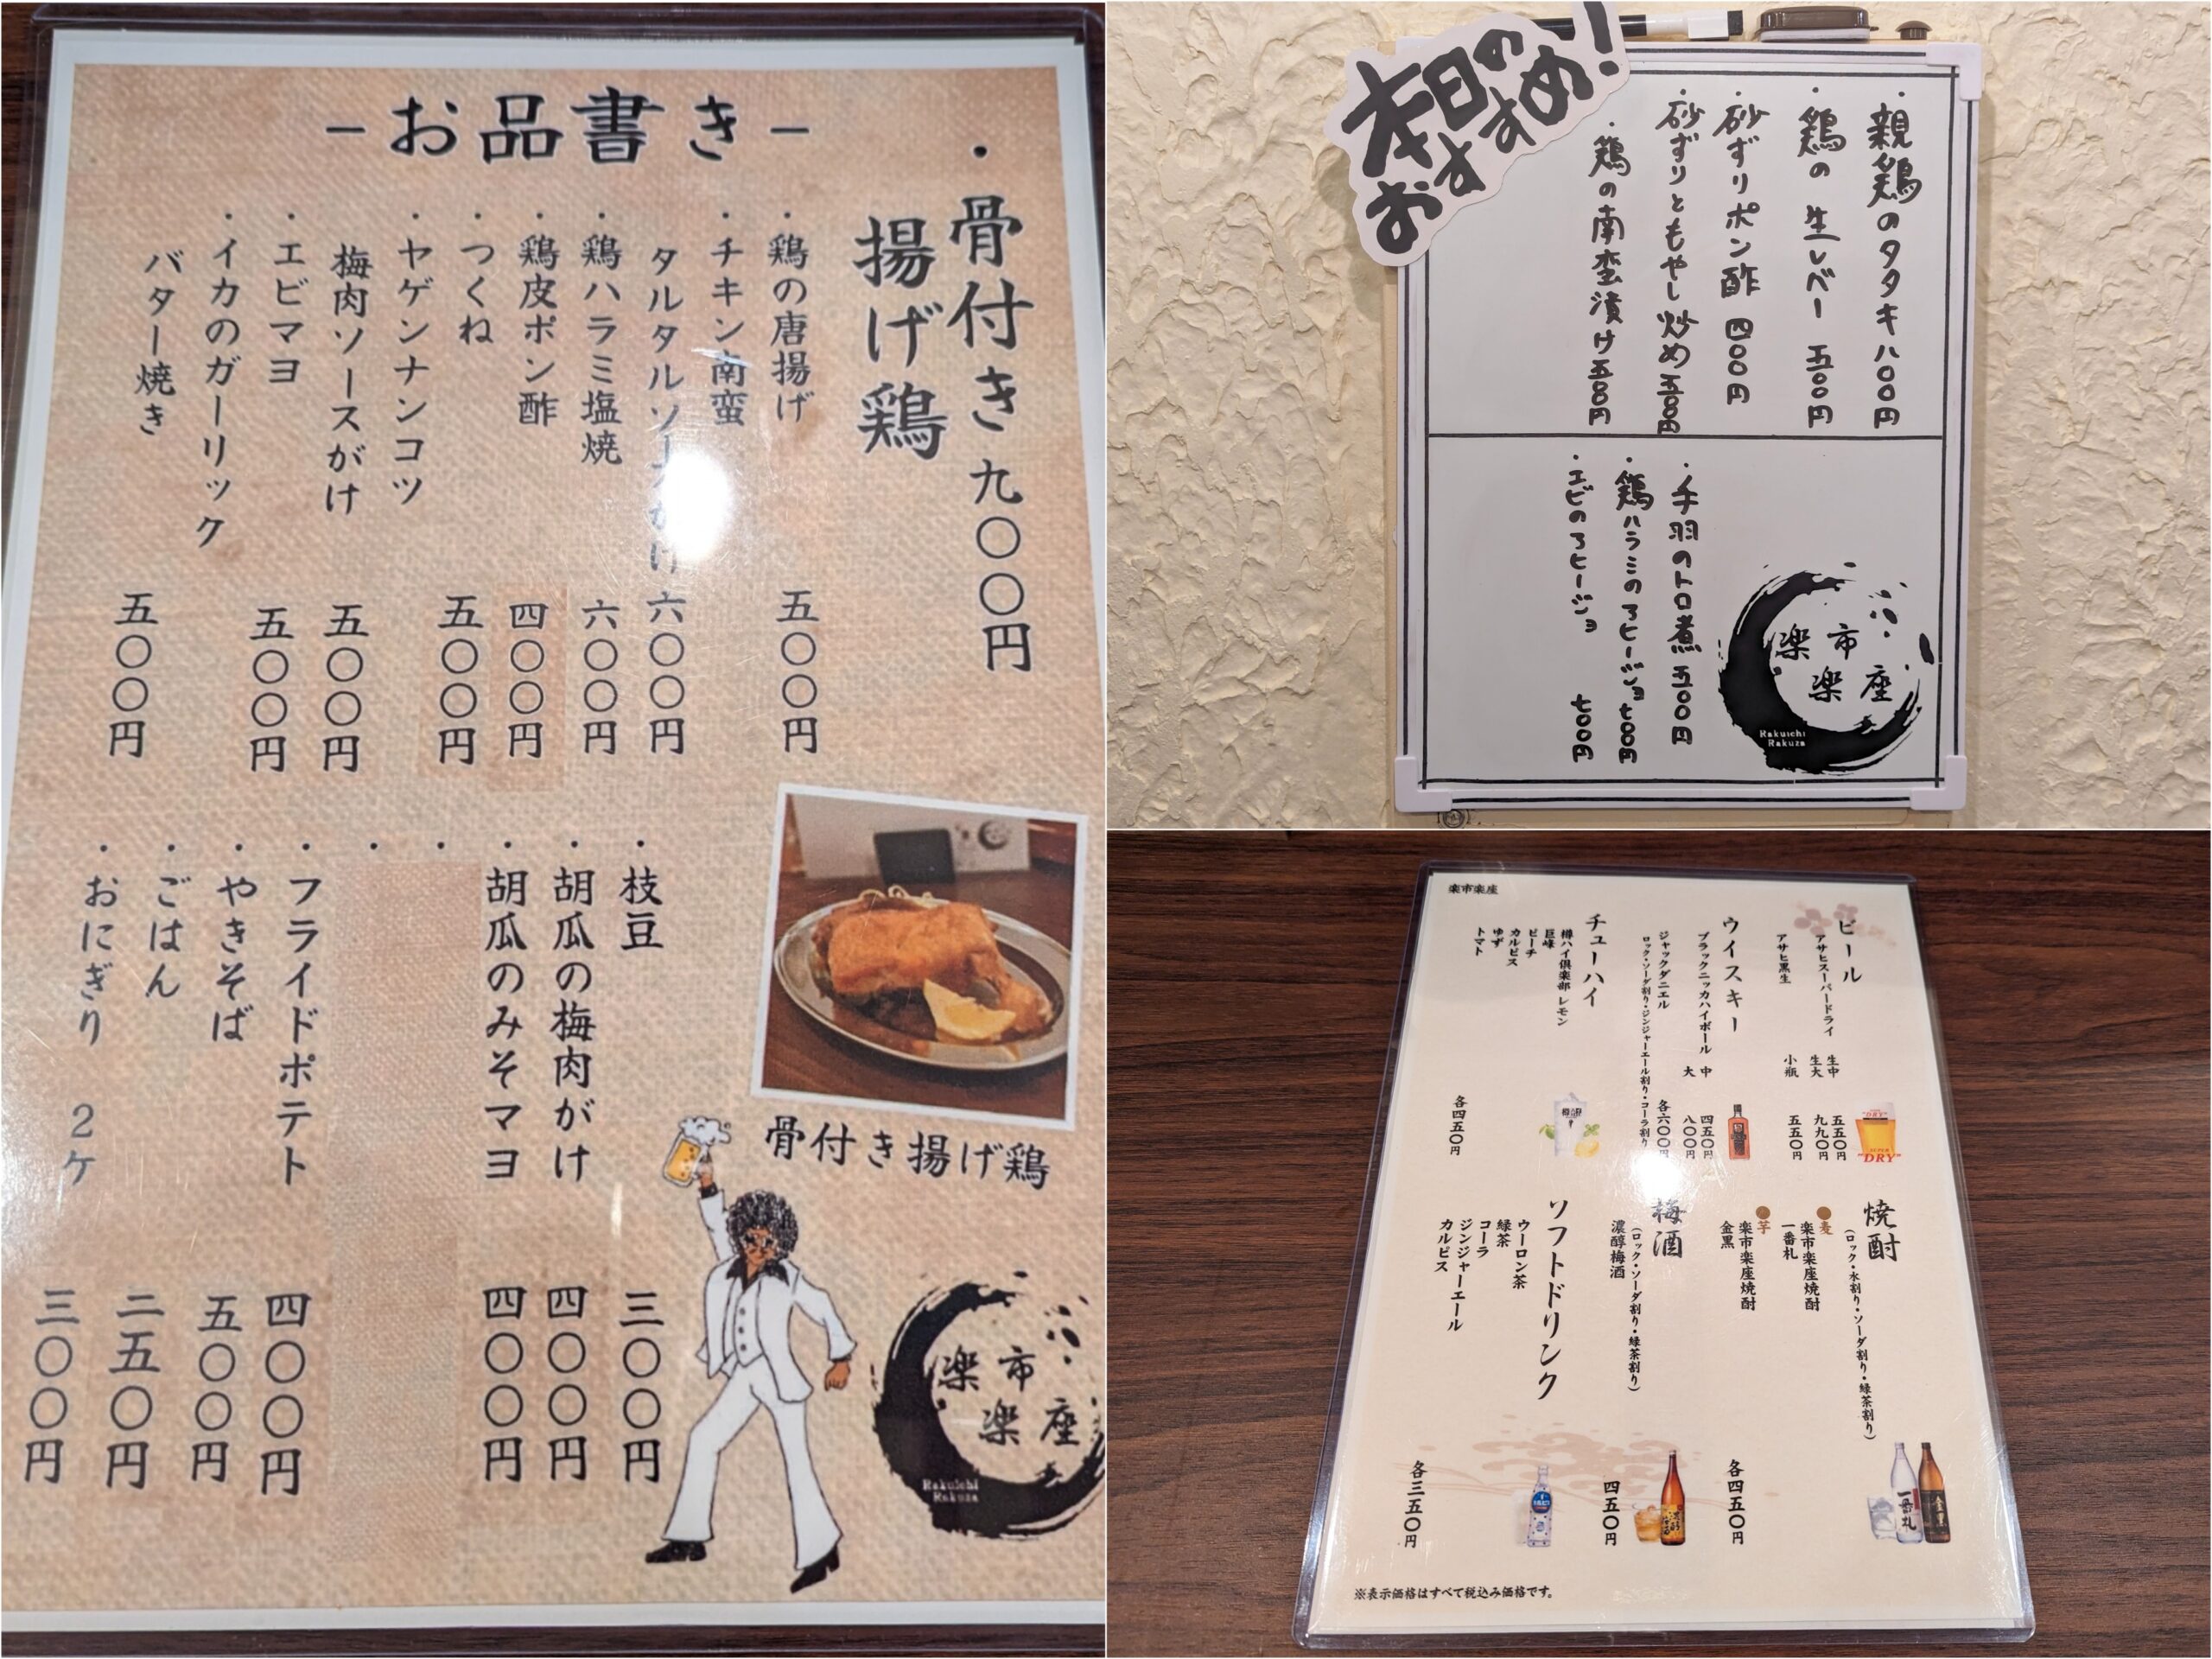 -お品書き-
・骨付き
揚げ鶏
九〇〇円
・鶏の唐揚げ 五〇〇円
・チキン南蛮
タルタルソースがけ 六〇〇円
・鶏ハラミ塩焼 六〇〇円
・鶏皮ポン酢 四〇〇円
・つくね 五〇〇円
・ヤゲンナンコツ
梅肉ソースがけ 五〇〇円
・エビマヨ 五〇〇円
・イカのガーリック
バター焼き 五〇〇円
・枝豆 三〇〇円
・胡瓜の梅肉がけ 四〇〇円
・胡瓜のみそマヨ 四〇〇円
・
・
・フライドポテト 四〇〇円
・やきそば 五〇〇円
・ごはん 二五〇円
・おにぎり 2ケ 三〇〇円
骨付き揚げ鶏
楽市
楽座
Rakuichi
Rakuza
本日の
おすすめ!
・親鶏のタタキ 八〇〇円
・鶏の生レバー 五〇〇円
・砂ずりポン酢 四〇〇円
・砂ずりともやし炒め 五〇〇円
・鶏の南蛮漬け 五〇〇円
・手羽のトロ煮 五〇〇円
・鶏ハラミのアヒージョ 七〇〇円
・エビのアヒージョ 七〇〇円
楽市
楽座
Rakuichi
Rakuza
楽市楽座
ビール
アサヒスーパードライ 生中 五五〇円
生大 九九〇円
アサヒ黒生 小瓶 五五〇円
"DRY"
SUPER
"DRY"
ウイスキー
ブラックニッカハイボール 中 四五〇円
大 八〇〇円
ジャックダニエル 各六〇〇円
ロック・ソーダ割り・ジンジャーエール割り・コーラ割り
チューハイ
樽ハイ倶楽部 レモン
巨峰
ピーチ
カルピス
ゆず
トマト
各四五〇円
焼酎
(ロック・水割り・ソーダ割り・緑茶割り)
●麦
楽市楽座焼酎
一番札
●芋
楽市楽座焼酎
金黒
各四五〇円
一番札
金黒
梅酒
(ロック・ソーダ割り・緑茶割り)
濃醇梅酒 四五〇円
ソフトドリンク
ウーロン茶
緑茶
コーラ
ジンジャーエール
カルピス
各三五〇円
※表示価格はすべて税込み価格です。